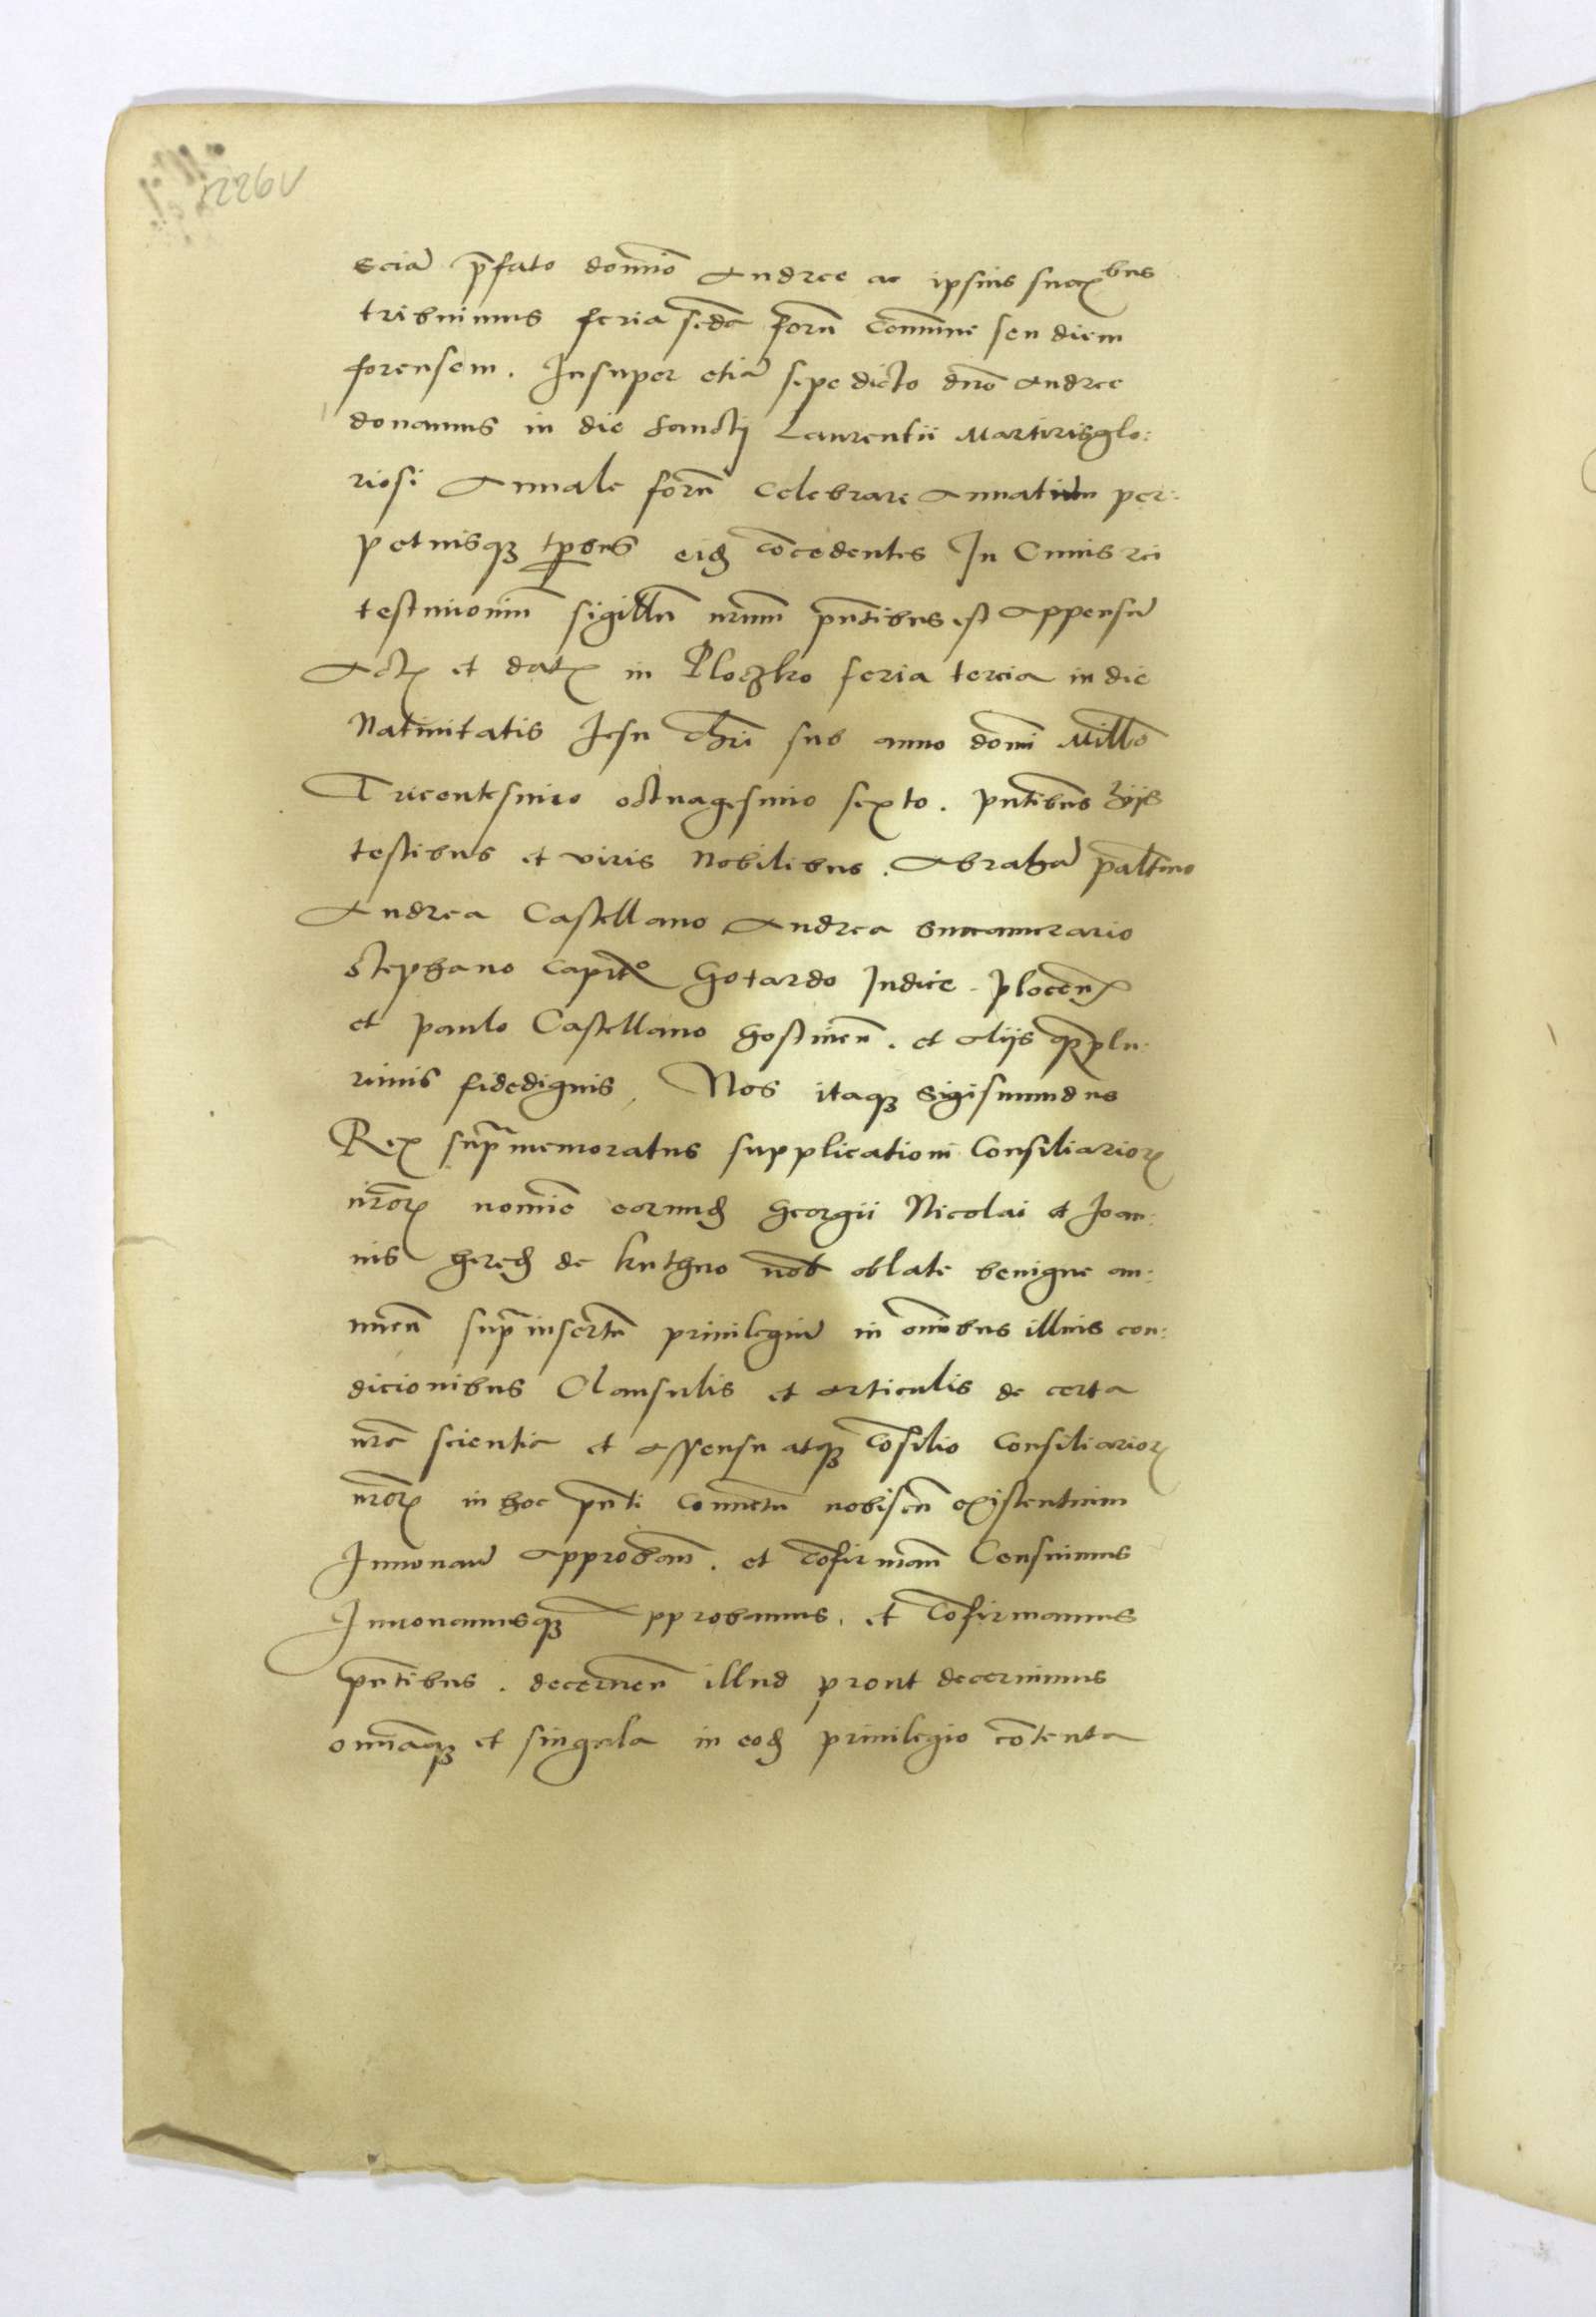 226v
Eciã p̃fato domĩo Andree ac ipsius succ̃bus
tribuimus feria scd̃a forũ Commune seu diem
forensem. Insuper etiã sepe dicto dño Andree
donamus in die Sancti Laurentii Martiris glo:
riosi Annale forũ celebrare Annatim per:
petuisq₃ tp̃orbus eid̃ cõcedentes In Cuius rei
testimoniũ sigillũ nr̃um pñtibus est Appensũ
Act̃ et dat̃ in Ploczko feria tercia in die
Natiuitatis Jesu Chr̃i sub anno domĩ Mill̃o
Tricentesimo octuagesimo sexto. pñtibus hijs
testibus et viris Nobilibus. Abrahã palt̃ino
Andrea Castellano Andrea Succamerario
Stephano Capit̃o Gotardo Judice Plocen̄
et Paulo Castellano Gostinen̄. et Alijs q̃plu:
rimis fidedignis, Nos itaq₃ Sigismundus
Rex supramemoratus supplicationi Consiliarior̃
nr̃or̃ nomĩe eorund̃ Georgii Nicolai et Joan:
nis hered̃ de kuthno nob̃ oblate benigne an:
nuen̄ supra insertũ priuilegiũ in oĩmbus illius con:
dicionibus Clausulis et articulis de certa
nr̃a scientia et assensu atq₃ cõsilio Consiliarior̃
nr̃or̃ in hoc pñti Conuentu nobiscũ existentium
Innouañ Approbañ. et cõfirmañ Censuimus
Innouamusq₃ Approbamus. et cõfirmamus
pñtibus. decernen̄ illud prout decernimus
omĩaq₃ et singula in eod̃ priuilegio cõtenta